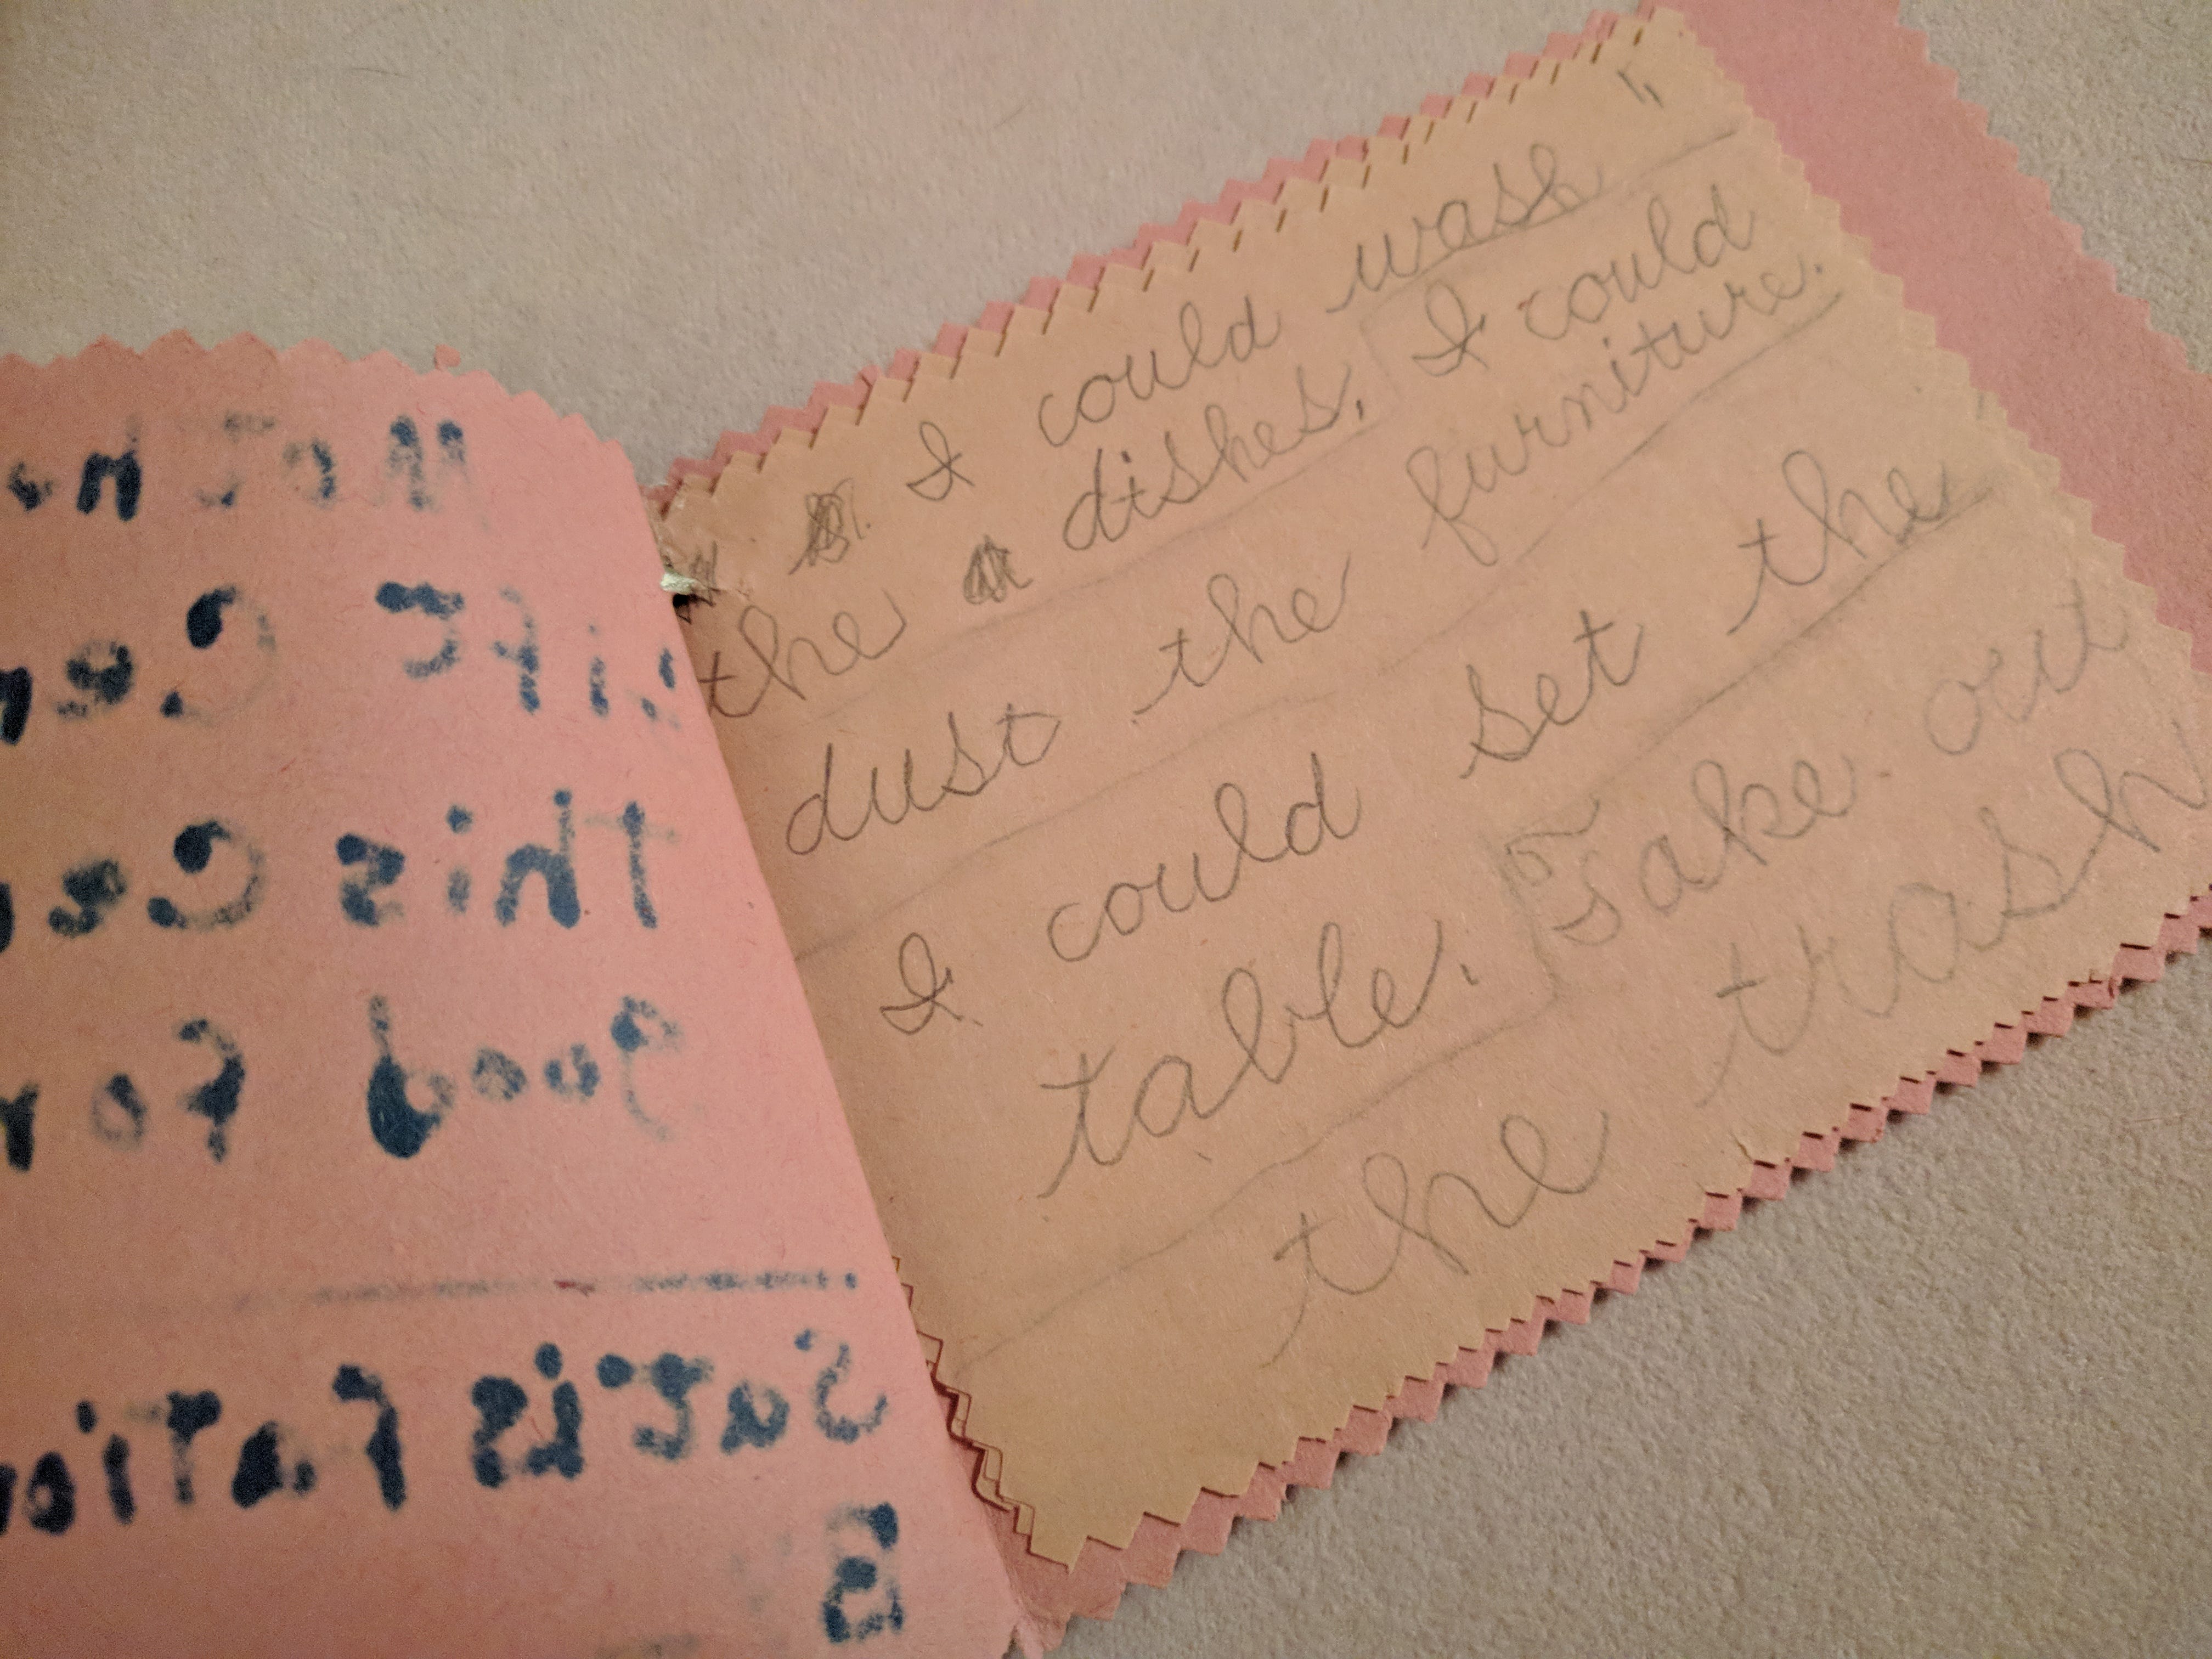 Gift
This
good for
I could wash
the dishes. I could
dust the furniture.
I could set the
table. Take out
the trash